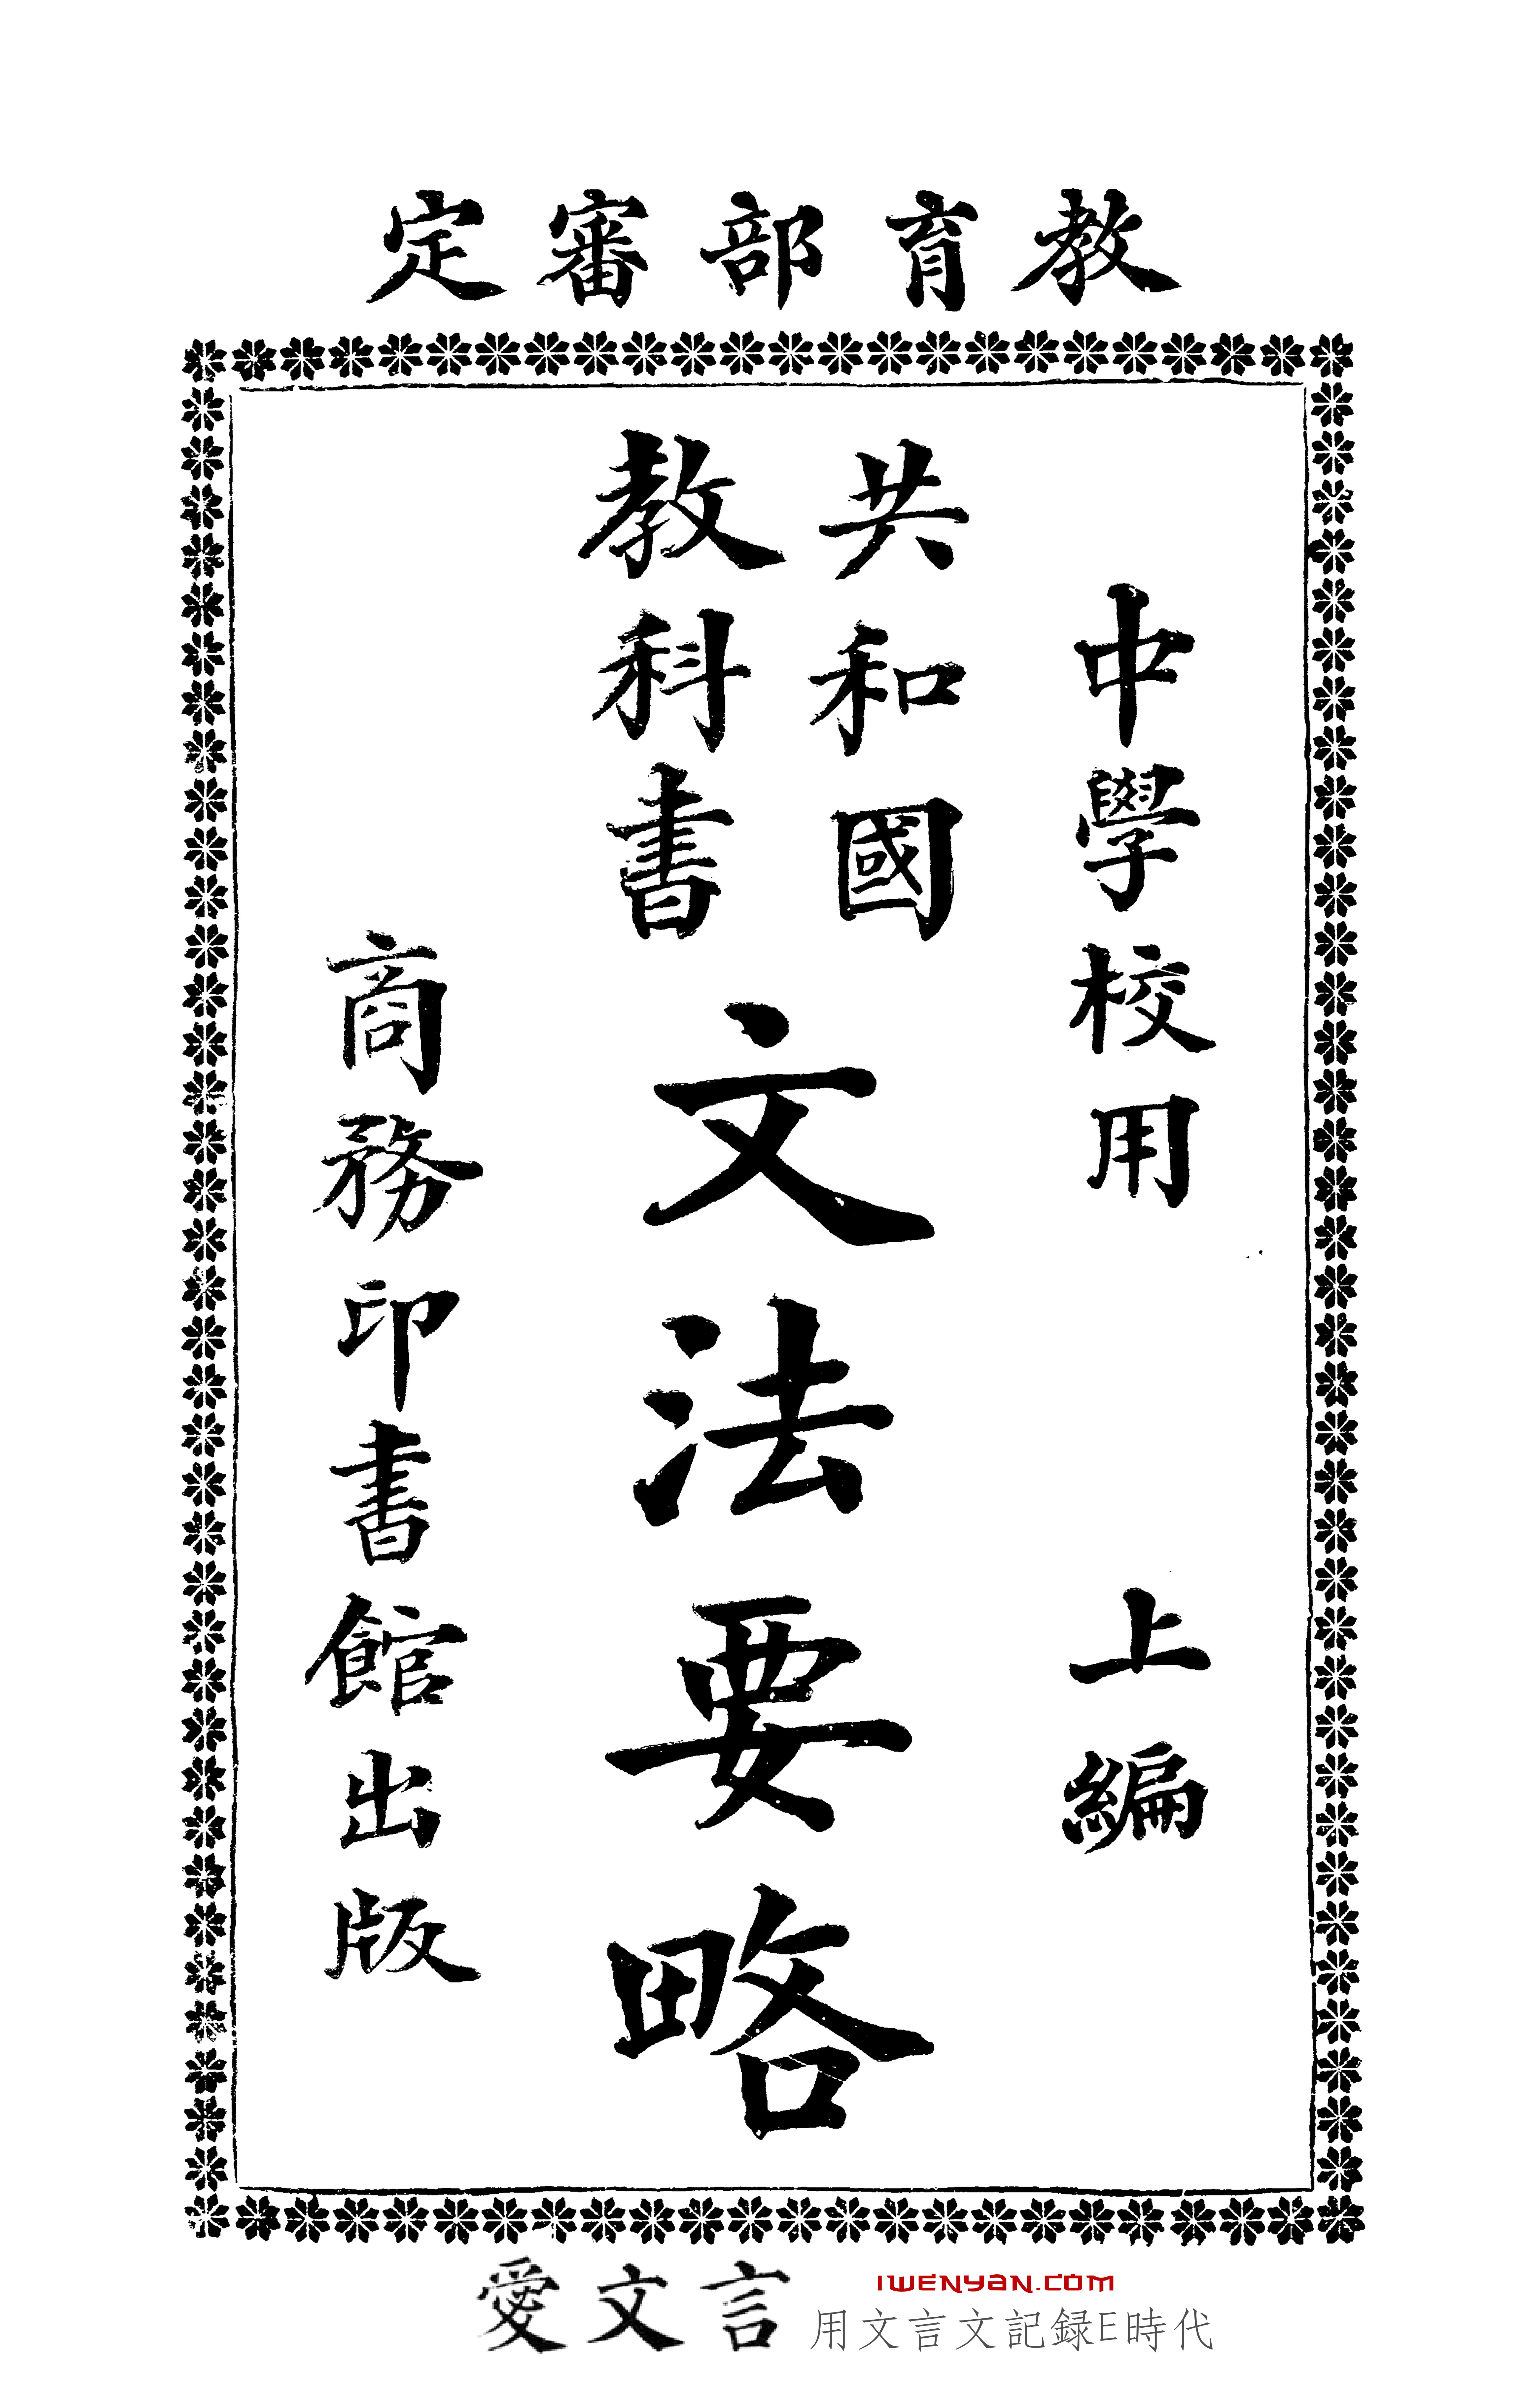 教育部審定
中學校用 上編
共和國
教科書
文法要略
商務印書館出版
愛文言
IWENYAN.COM
用文言文記録E時代